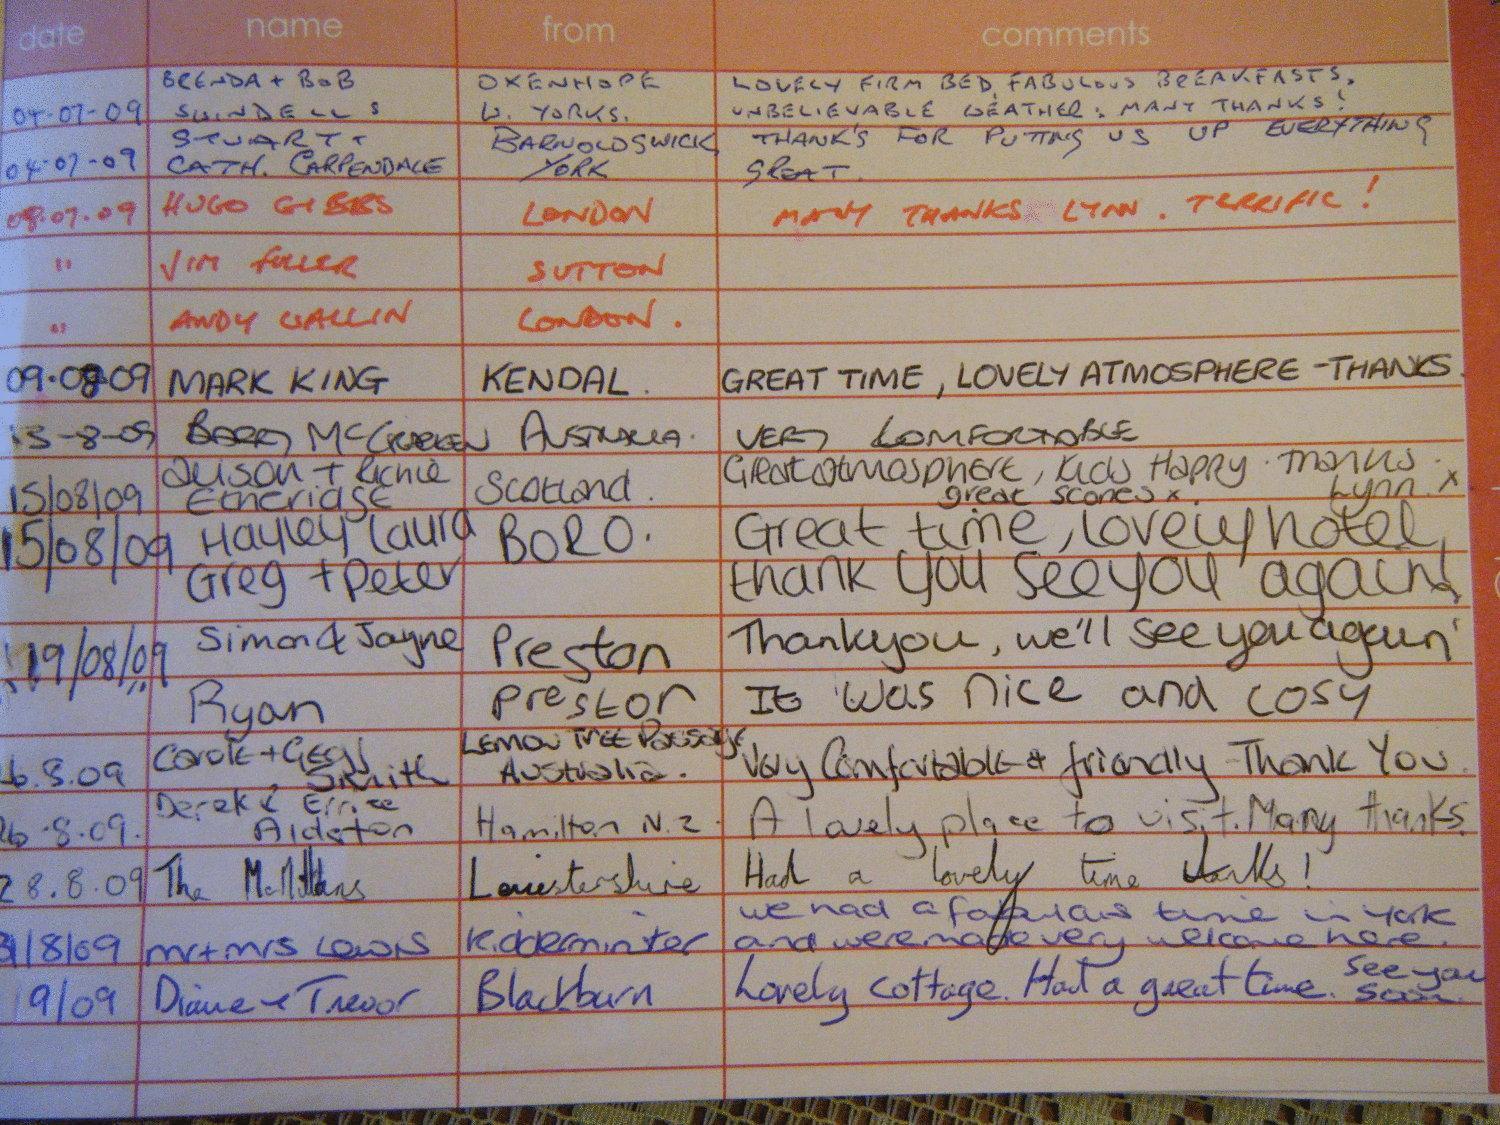 date name from comments
BRENDA + BOB OXENHOPE LOVELY FIRM BED, FABULOUS BREAKFASTS,
04-07-09 SWINDELLS W. YORKS. UNBELIEVABLE WEATHER. MANY THANKS!
STUART + BARNOLDSWICK THANK'S FOR PUTTING US UP EVERYTHING
04-07-09 CATH. CARPENDALE YORK GREAT.
08.07.09 HUGO GIBBS LONDON MANY THANKS LYNN. TERRIFIC!
" JIM FULLER SUTTON
" ANDY WALLIN LONDON.
09.08.09 MARK KING KENDAL. GREAT TIME, LOVELY ATMOSPHERE - THANKS.
13-8-09 BARRY McCRACKEN AUSTRALIA. VERY COMFORTABLE
Alison + Richie Great atmosphere, kids Happy. Thanks
15/08/09 Etheridge Scotland. great scones x. Lynn. x
15/08/09 Hayley Laura BORO. Great time, lovely hotel,
Greg + Peter thank you see you again!
19/08/09 Simon & Jayne Preston Thankyou, we'll see you again'
Ryan Preston It was nice and cosy
Carole + Geoff LEMON TREE Passage
6.8.09 Smith Australia. Very Comfortable & friendly - Thank You.
Derek &
26.8.09. Hamilton N.Z. A lovely place to visit. Many thanks.
28.8.09 The McMillans Leicestershire Had a lovely time thanks!
we had a fabulous time in York
31/8/09 mr + mrs Lewis Kidderminster and were made very welcome here.
9/09 Diane & Trevor Blackburn Lovely cottage. Had a great time. See you
soon.